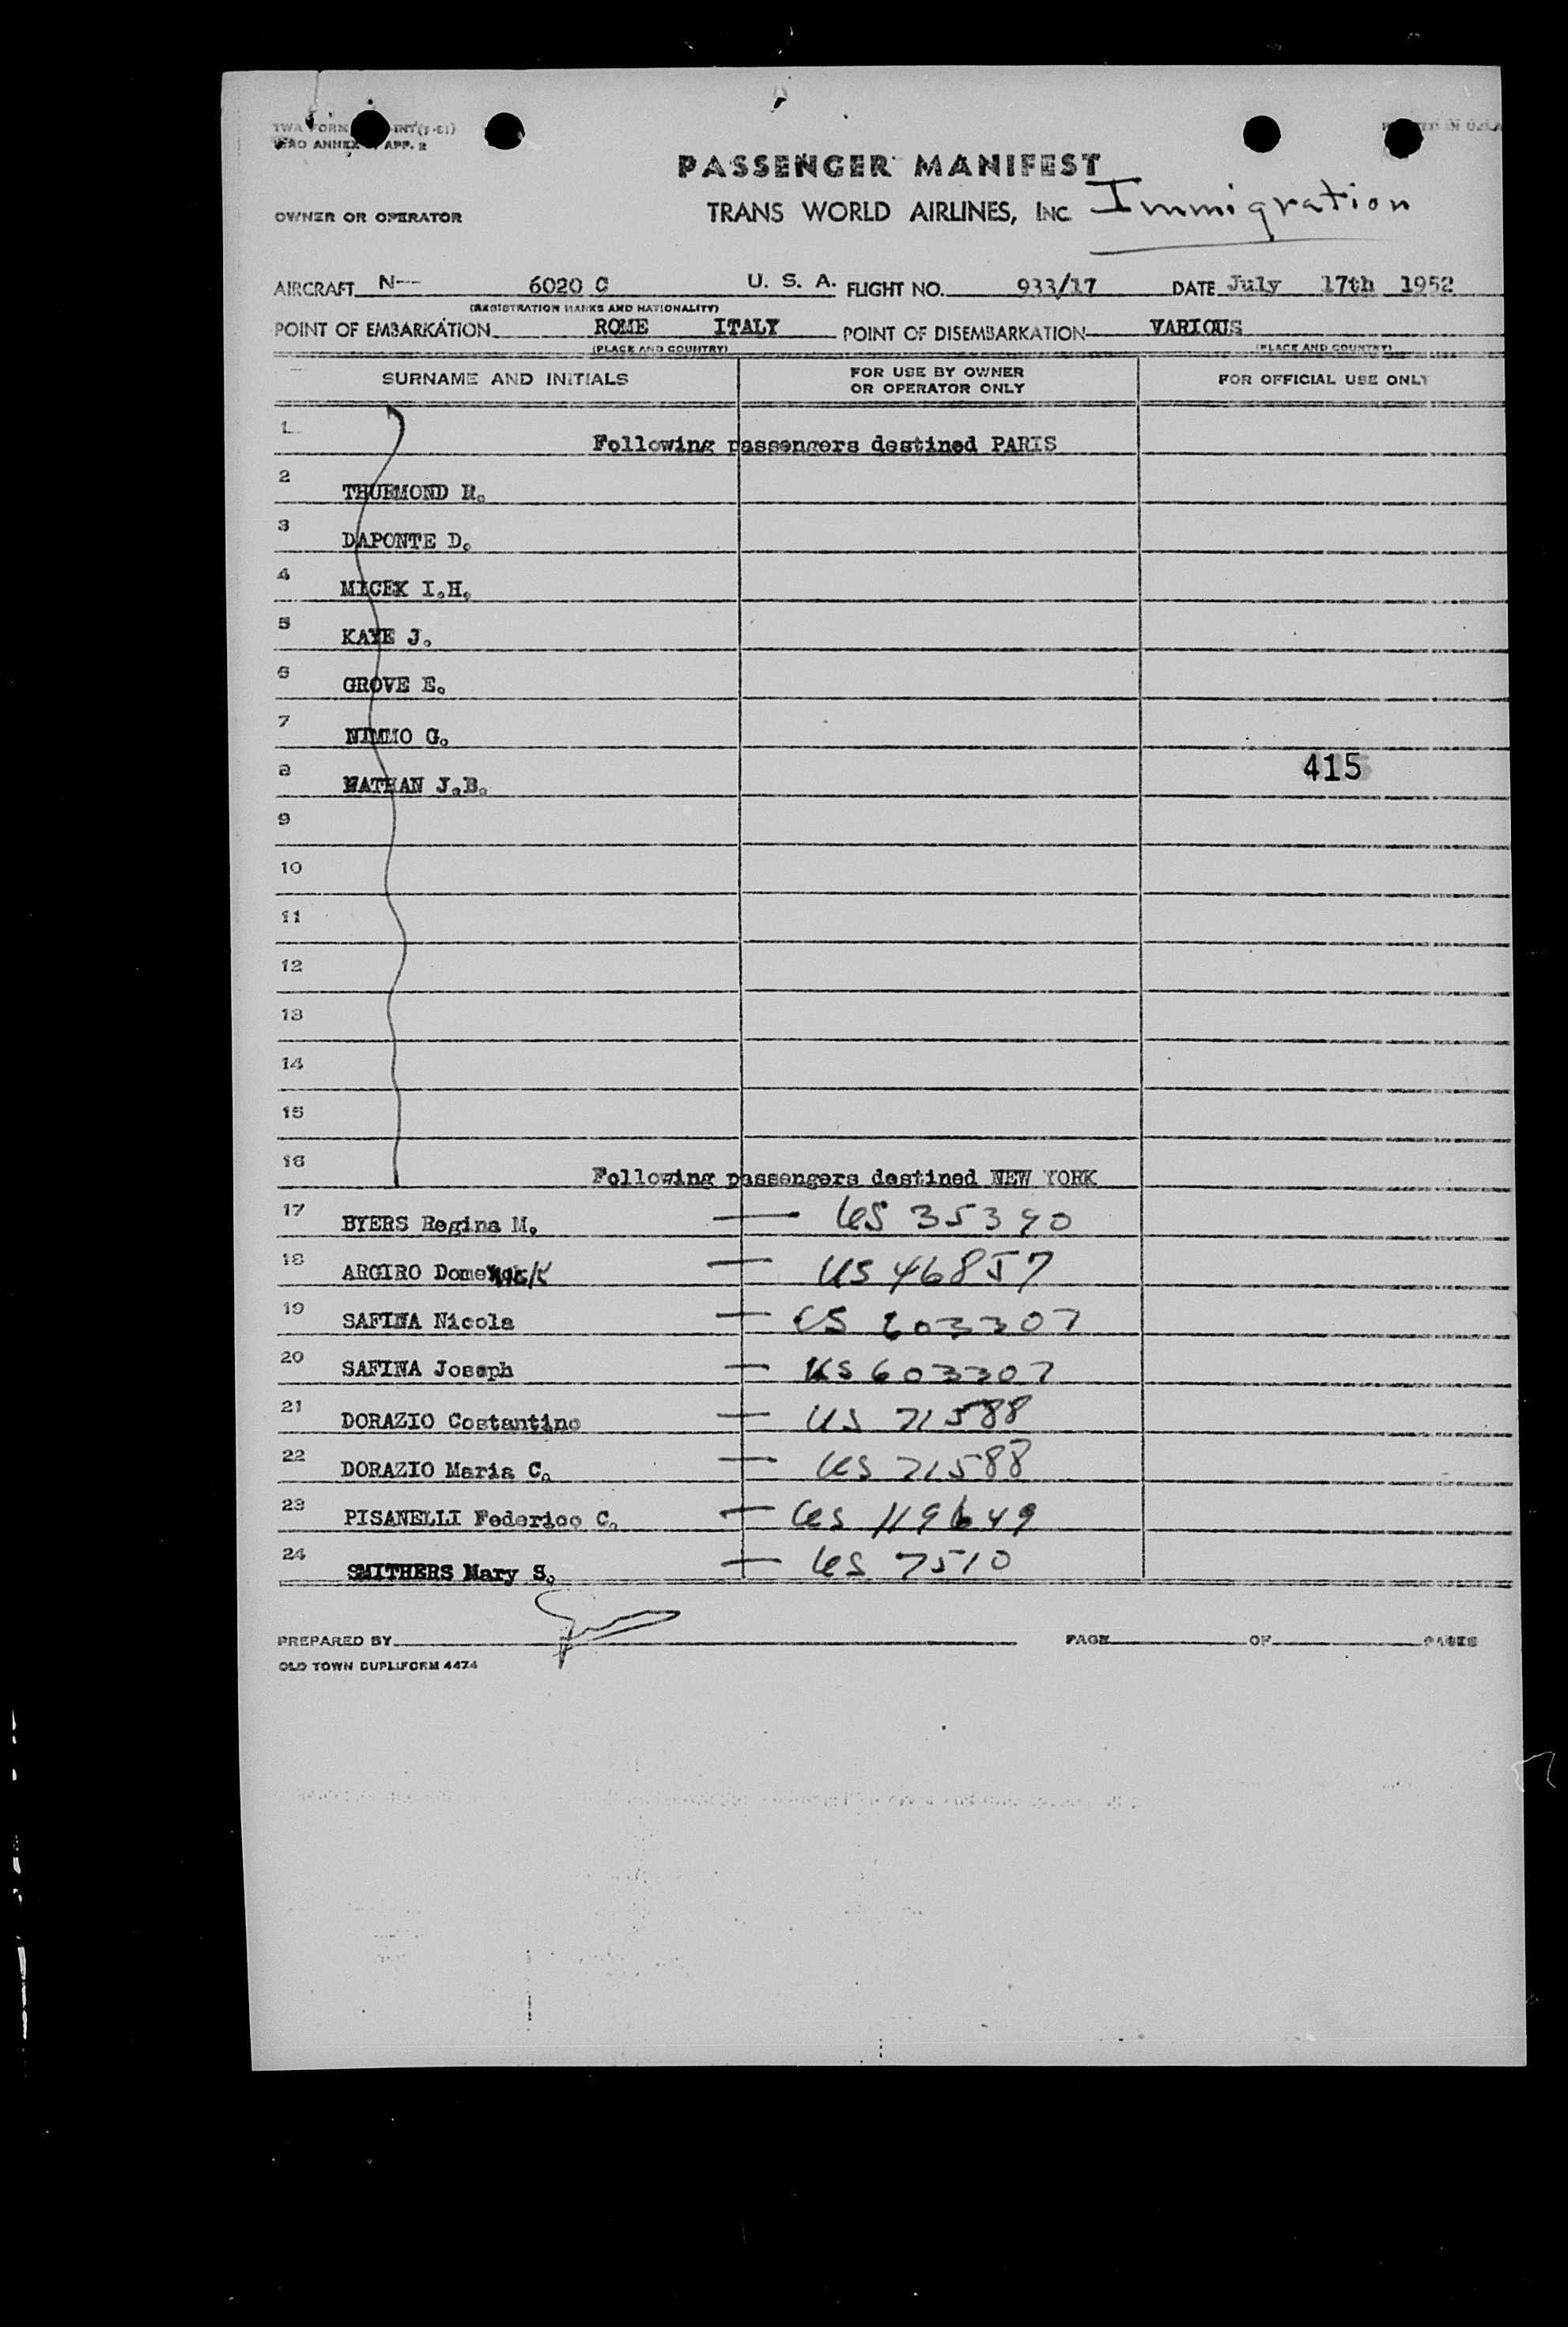 TWA FORM INT(5-51)
ICAO ANNEX 9, APP. 2
PRINTED IN U.S.A.
PASSENGER MANIFEST
OWNER OR OPERATOR TRANS WORLD AIRLINES, INC Immigration
AIRCRAFT N-- 6020 C U. S. A. FLIGHT NO. 933/17 DATE July 17th 1952
(REGISTRATION MARKS AND NATIONALITY)
POINT OF EMBARKATION ROME ITALY POINT OF DISEMBARKATION VARIOUS
(PLACE AND COUNTRY) (PLACE AND COUNTRY)
SURNAME AND INITIALS FOR USE BY OWNER OR OPERATOR ONLY FOR OFFICIAL USE ONLY
1 Following passengers destined PARIS
2 THURMOND R.
3 DAPONTE D.
4 MICEK I.H.
5 KAYE J.
6 GROVE E.
7 NIMMO G.
8 NATHAN J.B. 415
9
10
11
12
13
14
15
16 Following passengers destined NEW YORK
17 BYERS Regina M. — US 35390
18 ARGIRO — US 46857
19 SAFINA Nicola — US 603307
20 SAFINA Joseph — US 603307
21 DORAZIO Costantino — US 71588
22 DORAZIO Maria C. — US 71588
23 PISANELLI Federico C. — US 119649
24 SMITHERS Mary S. — US 7510
PREPARED BY PAGE OF PAGES
OLD TOWN DUPLIFORM 4474